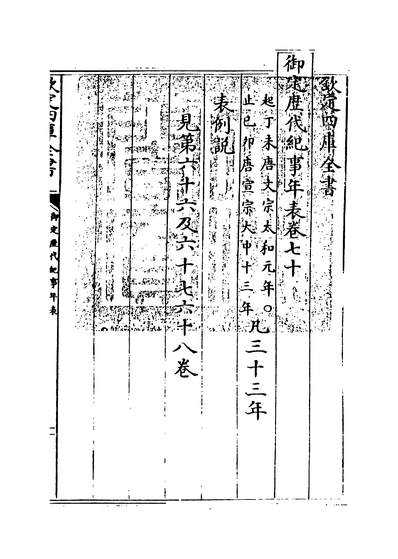 欽定四庫全書
御定歷代紀事年表卷七十
起丁未唐文宗太和元年〇
止己卯唐宣宗大中十三年
凡三十三年
表例說
見第六十六及六十七六十八卷
御定歷代紀事年表